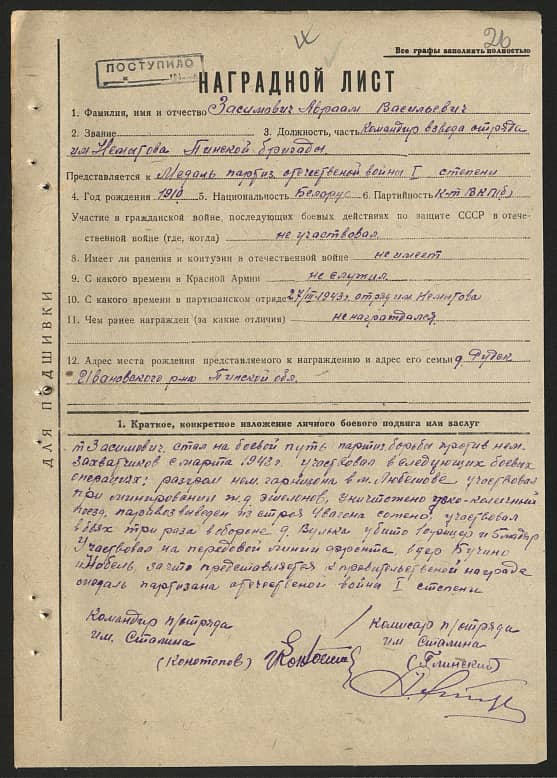 26
Все графы заполнять полностью
ПОСТУПИЛО
НАГРАДНОЙ ЛИСТ
1. Фамилия, имя и отчество Засимович Авраам Васильевич
2. Звание 3. Должность, часть Командир взвода отряда
им Немытова Пинской бригады
Представляется к Медаль партиз. отечественой войны I степени
4. Год рождения 1910 5. Национальность Белорус 6. Партийность К-т ВКП(б)
Участие в гражданской войне, последующих боевых действиях по защите СССР в отече-
ственной войне (где, когда) не участвовал
8. Имеет ли ранения и контузии в отечественной войне не имеет
9. С какого времени в Красной Армии не служил
10. С какого времени в партизанском отряде 27/III-1943 г. отряд им Немытова
11. Чем ранее награжден (за какие отличия) не награждался
12. Адрес места рождения представляемого к награждению и адрес его семьи д.
Ивановского р-на Пинской обл.
ДЛЯ ПОДШИВКИ
1. Краткое, конкретное изложение личного боевого подвига или заслуг
т Засимович стал на боевой путь партиз. борьбы против нем.
захватчиков с марта 1943 г. участвовал в следующих боевых
операциях: разгром нем. гарнизона в м. Любешове участвовал
при минировании ж.д эшелонов, уничтожено узко-колейный
поезд, паравоз выведен из строя вагона участвовал
в боях три раза в обороне д. Вулька убито 1 офицер и
Участвовал на передовой линии фронта в дер Кучино
и Нобель, за что представляется к правительственой награда
медаль партизана отечественой война I степени
Командир п/отряда
им. Сталина
(Конотопов)
Комисар п/отряда
им Сталина
(Глинский)